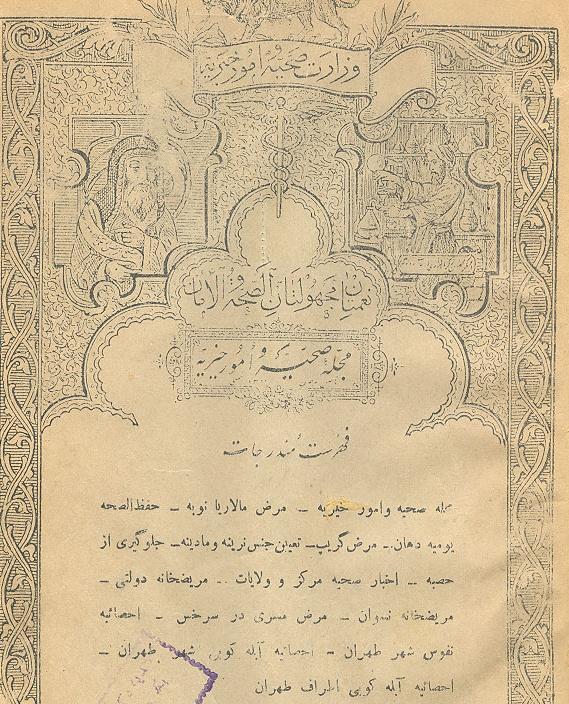 وزارت صحیه و امور خیریه
نعمتان مجهولتان الصحة و الامان
مجله صحیه و امور خیریه
فهرست مندرجات
مجله صحیه وامور خیریه ــ مرض مالاریا نوبه ــ حفظ‌الصحه
یومیه دهان ــ مرض گریپ ــ تعیین جنس نرینه ومادینه ــ جلوگیری از
حصبه ــ اخبار صحیه مرکز و ولایات ــ مریضخانه دولتی ــ
مریضخانه نسوان ــ مرض مسری در سرخس ــ احصائیه
نفوس شهر طهران ــ احصائیه آبله کوبی شهر طهران ــ
احصائیه آبله کوبی اطراف طهران